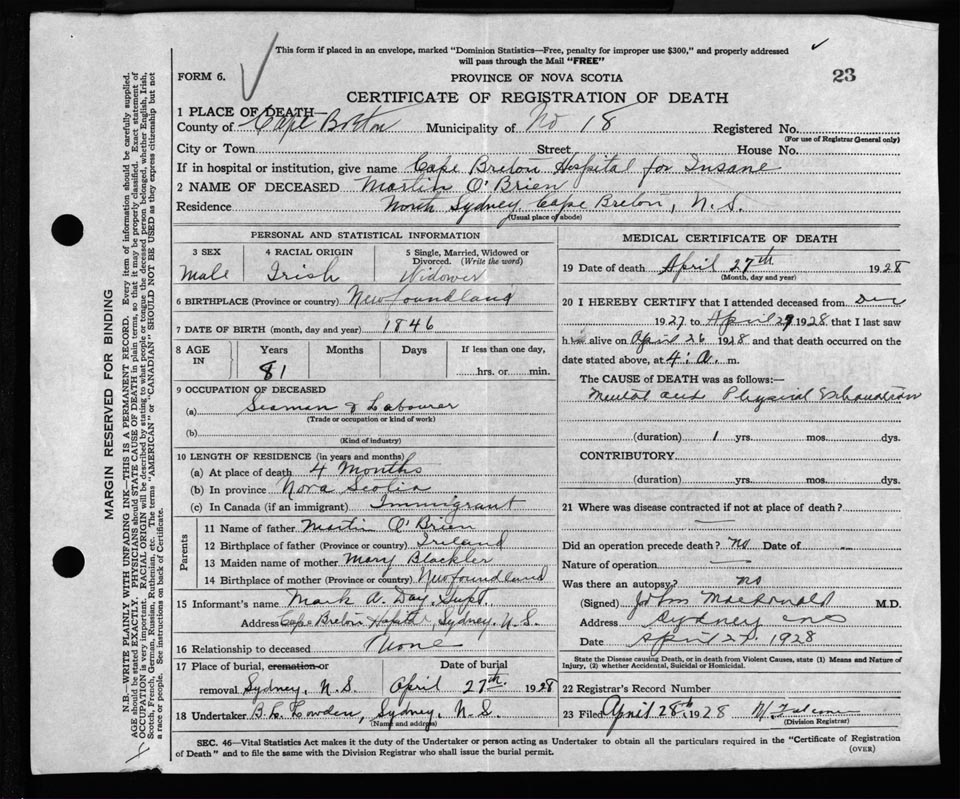 This form if placed in an envelope, marked "Dominion Statistics—Free, penalty for improper use $300," and properly addressed
will pass through the Mail "FREE"
FORM 6.
PROVINCE OF NOVA SCOTIA
23
CERTIFICATE OF REGISTRATION OF DEATH
1 PLACE OF DEATH—
County of Cape Breton Municipality of No 18 Registered No.
(For use of Registrar General only)
City or Town Street House No.
If in hospital or institution, give name Cape Breton Hospital for Insane
2 NAME OF DECEASED Martin O'Brien
Residence North Sydney, Cape Breton, N.S.
(Usual place of abode)
PERSONAL AND STATISTICAL INFORMATION
3 SEX 4 RACIAL ORIGIN 5 Single, Married, Widowed or
Divorced. (Write the word)
Male Irish Widower
6 BIRTHPLACE (Province or country) Newfoundland
7 DATE OF BIRTH (month, day and year) 1846
8 AGE IN Years Months Days If less than one day,
81 hrs. or min.
9 OCCUPATION OF DECEASED
(a) Seaman & Labourer
(Trade or occupation or kind of work)
(b)
(Kind of industry)
10 LENGTH OF RESIDENCE (in years and months)
(a) At place of death 4 Months
(b) In province Nova Scotia
(c) In Canada (if an immigrant) Immigrant
Parents
11 Name of father Martin O'Brien
12 Birthplace of father (Province or country) Ireland
13 Maiden name of mother Mary Blackler
14 Birthplace of mother (Province or country) Newfoundland
15 Informant's name Mark A. Day, Supt.
Address Cape Breton Hospital, Sydney, N.S.
16 Relationship to deceased None
17 Place of burial, cremation or Date of burial
removal Sydney, N.S. April 27th 1928
18 Undertaker Sydney, N.S.
(Name and address)
MEDICAL CERTIFICATE OF DEATH
19 Date of death April 27th 1928
(Month, day and year)
20 I HEREBY CERTIFY that I attended deceased from Dec
1927 to April 27 1928 that I last saw
him alive on April 26 1928 and that death occurred on the
date stated above, at 4: a. m.
The CAUSE OF DEATH was as follows:—
Mental and Physical Exhaustion
(duration) 1 yrs. mos. dys.
CONTRIBUTORY
(duration) yrs. mos. dys.
21 Where was disease contracted if not at place of death?
Did an operation precede death? no Date of
Nature of operation
Was there an autopsy? no
(Signed) John MacDonald M.D.
Address Sydney
Date April 27, 1928
State the Disease causing Death, or in death from Violent Causes, state (1) Means and Nature of
Injury, (2) whether Accidental, Suicidal or Homicidal.
22 Registrar's Record Number
23 Filed April 28th, 1928
(Division Registrar)
SEC. 46—Vital Statistics Act makes it the duty of the Undertaker or person acting as Undertaker to obtain all the particulars required in the "Certificate of Registration
of Death" and to file the same with the Division Registrar who shall issue the burial permit.
(OVER)
MARGIN RESERVED FOR BINDING
N.B.—WRITE PLAINLY WITH UNFADING INK—THIS IS A PERMANENT RECORD. Every item of information should be carefully supplied.
AGE should be stated EXACTLY. PHYSICIANS should STATE CAUSE OF DEATH in plain terms, so that it may be properly classified. Exact statement of
OCCUPATION is very important. RACIAL ORIGIN will be described by stating to what people or tongue the deceased person belonged, whether English, Irish,
Scotch, French, German, Russian, Ruthenian, etc. The terms "AMERICAN" or "CANADIAN" SHOULD NOT BE USED as they express citizenship but not
a race or people. See instructions on back of Certificate.